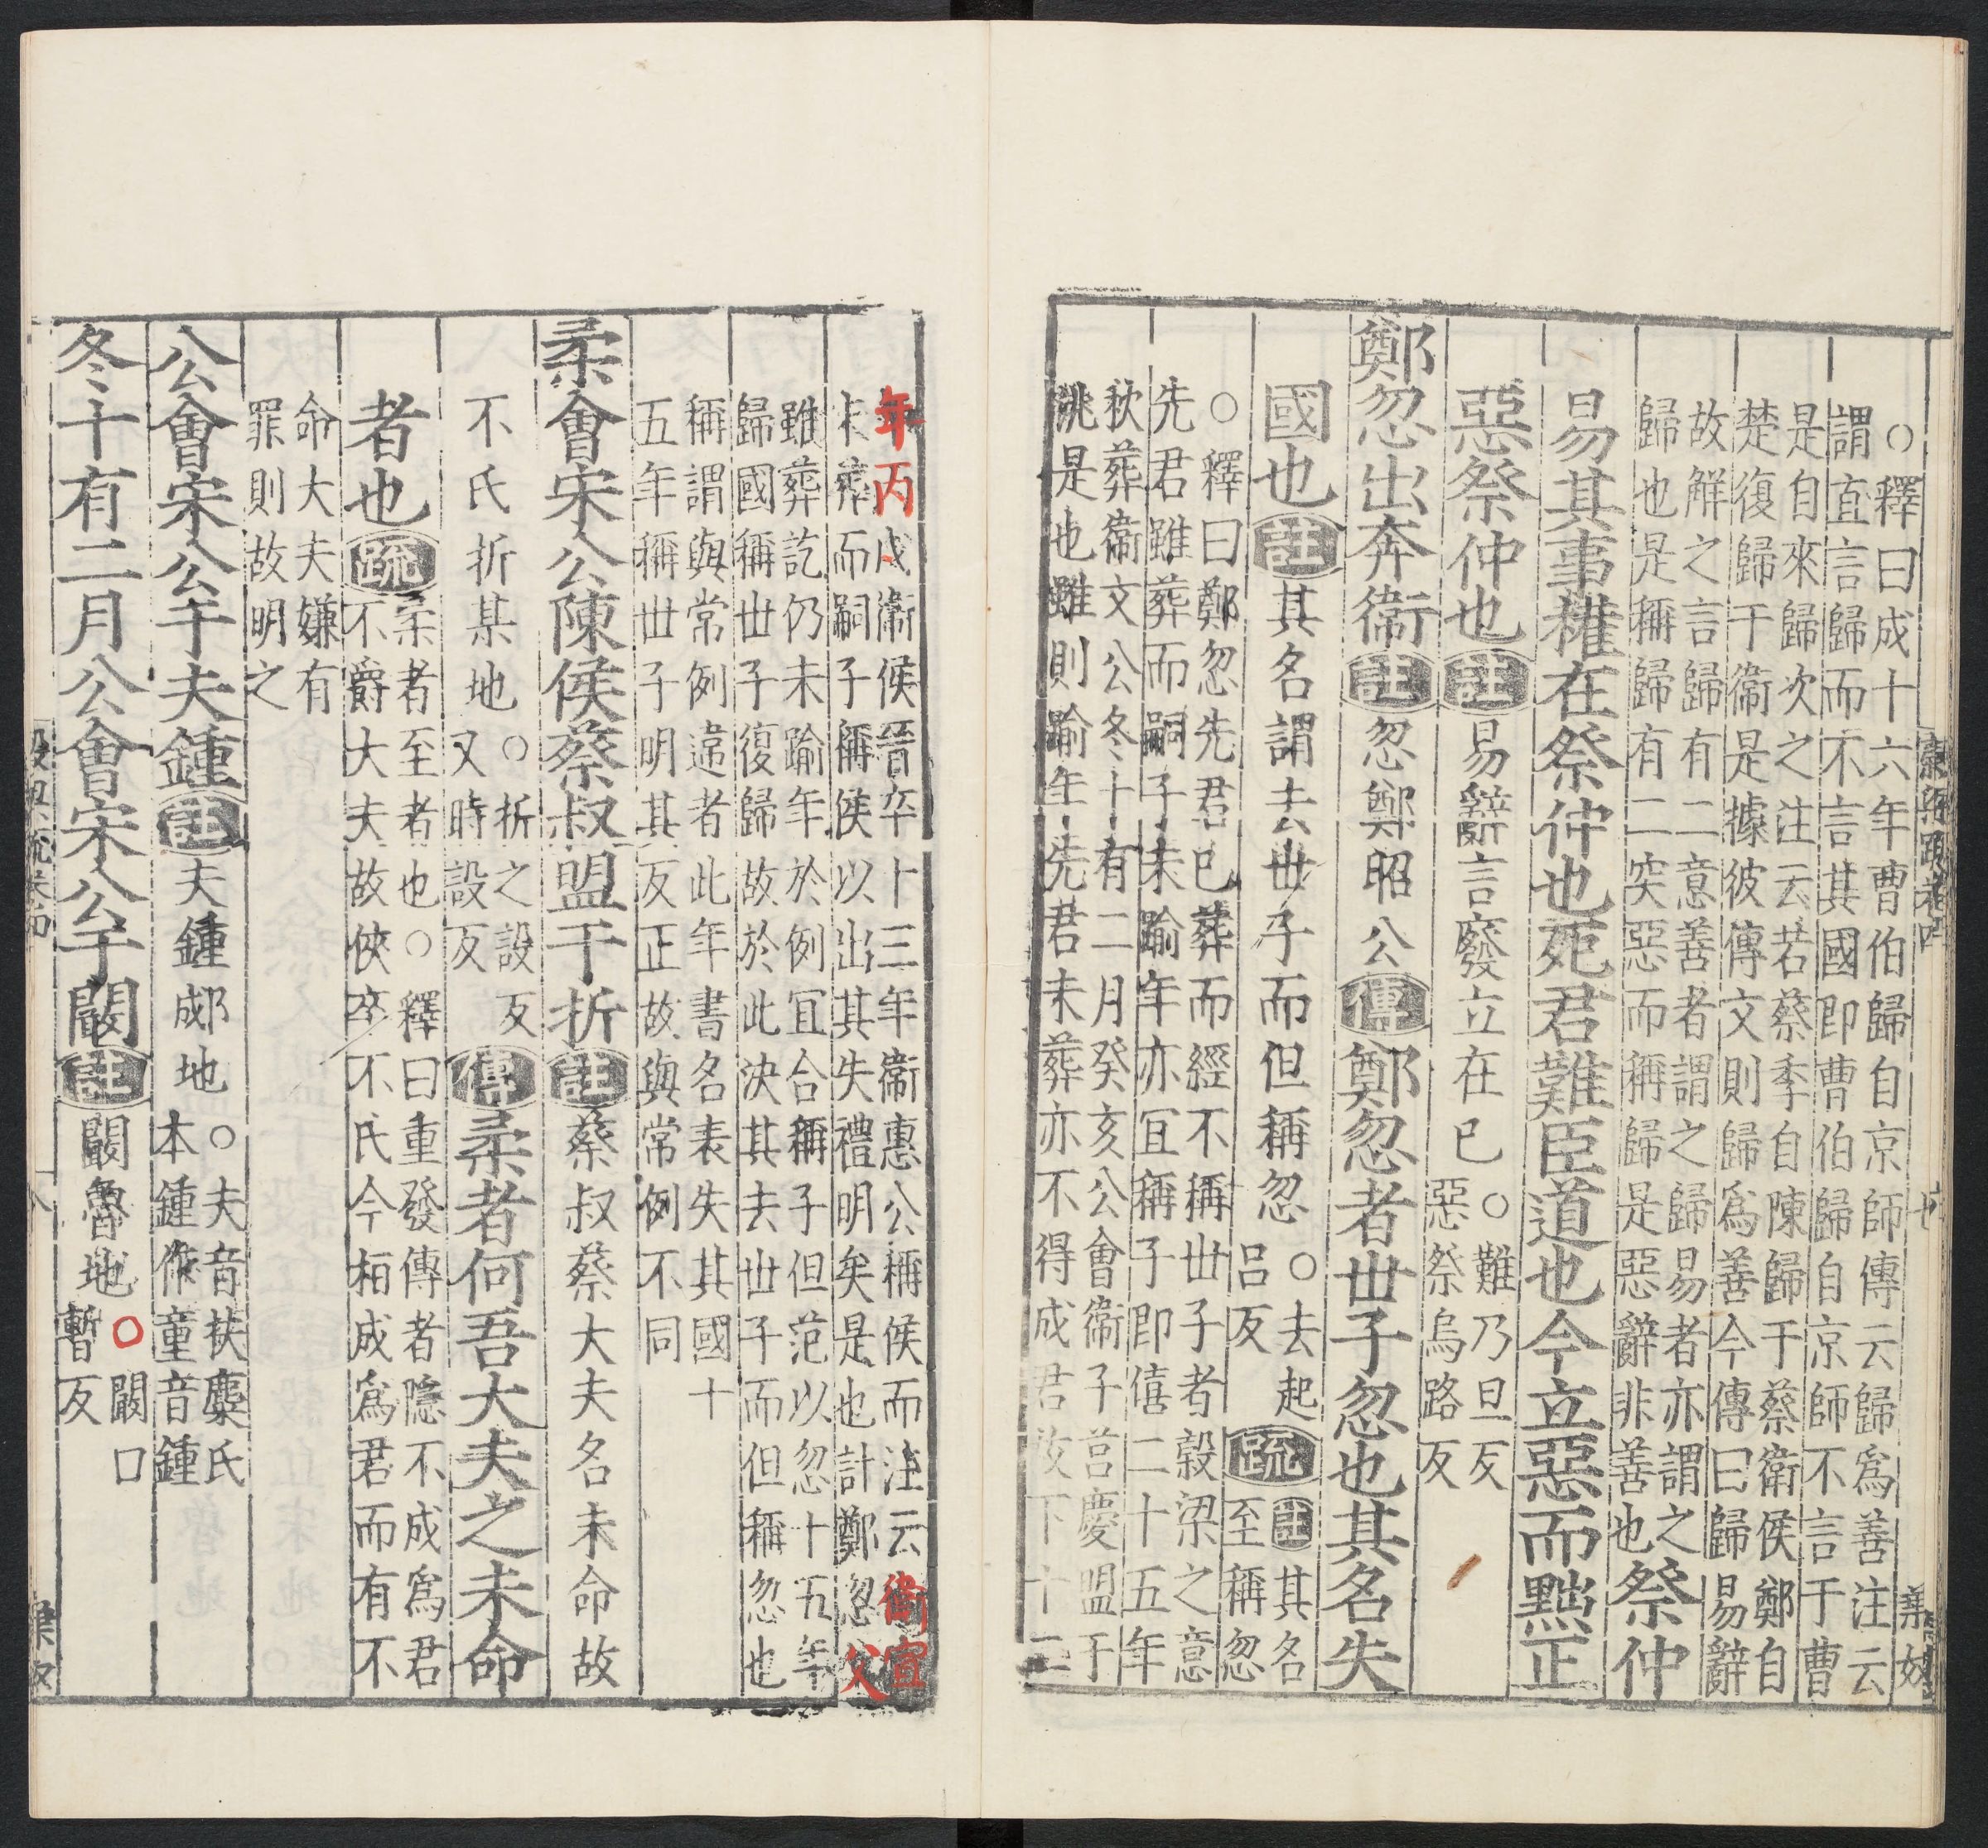 ○釋曰成十六年曹伯歸自京師傳云歸爲善注云
謂直言歸而不言其國即曹伯歸自京師不言于曹
是自來歸次之注云若蔡季自陳歸于蔡衛侯鄭自
楚復歸于衛是據彼傳文則歸爲善今傳曰歸易辭
故解之言歸有二意善者謂之歸易者亦謂之
歸也是稱歸有二突惡而稱歸是惡辭非善也祭仲
易其事權在祭仲也死君難臣道也今立惡而黜正
惡祭仲也註易辭言廢立在已○難乃旦反
惡祭烏路反
鄭忽出奔衛註忽鄭昭公傳鄭忽者世子忽也其名失
國也註其名謂去世子而但稱忽○去起
呂反疏註其名
至稱忽
○釋曰鄭忽先君已葬而經不稱世子者穀梁之意
先君雖葬而嗣子未踰年亦冝稱子即僖二十五年
秋葬衛文公冬十有二月癸亥公會衛子莒慶盟于
洮是也雖則踰年先君未葬亦不得成君故下十三
年丙戌衛侯晉卒十三年衛惠公稱侯而注云衛宣
未葬而嗣子稱侯以出其失禮明矣是也計鄭忽父
雖葬訖仍未踰年於例冝合稱子但范以忽十五年
歸國稱世子復歸故於此決其去世子而但稱忽也
稱謂與常例違者此年書名表失其國十
五年稱世子明其反正故與常例不同
柔會宋公陳侯蔡叔盟于折註蔡叔蔡大夫名未命故
不氏折某地○折之設反
又時設反傳柔者何吾大夫之未命
者也疏柔者至者也○釋曰重發傳者隱不成爲君
不爵大夫故俠卒不氏今桓成爲君而有不
命大夫嫌有
罪則故明之
公會宋公于夫鍾註夫鍾郕地○夫音扶麋氏
本鍾作童音鍾
冬十有二月公會宋公于闞註闞魯地○闞口
暫反